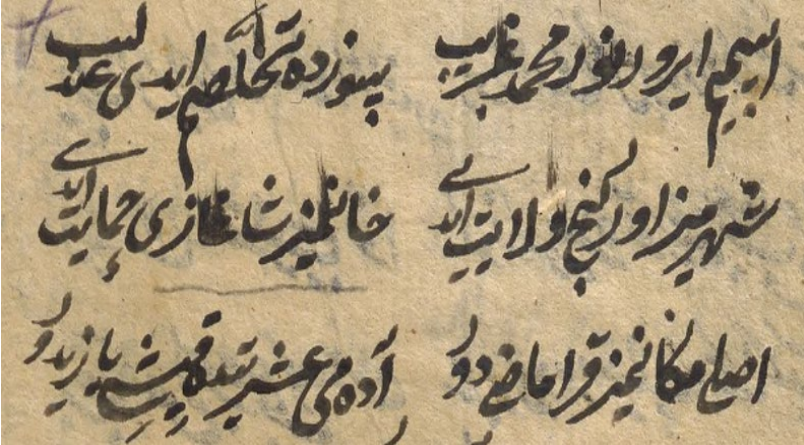 اسیمیم ایرور نورمحمد غریب بیسوزده تخلصیم ایدی عندلیب
شهریمیز اورکنج ولایت ایدی خانیمیز شاغازی حمایت ایدی
اصلی مکانیمیز قراماضی دور آده می عشرتده قیش یازیدور